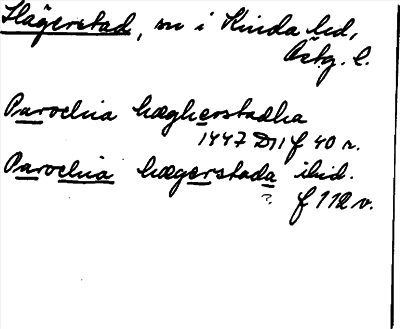 Hägerstad, sn i Kinda hd,
Östg. l.
Parochia hægherstadha
1447 D11 f 40 r.
Parochia hægerstada ibid.
? f 112 v.